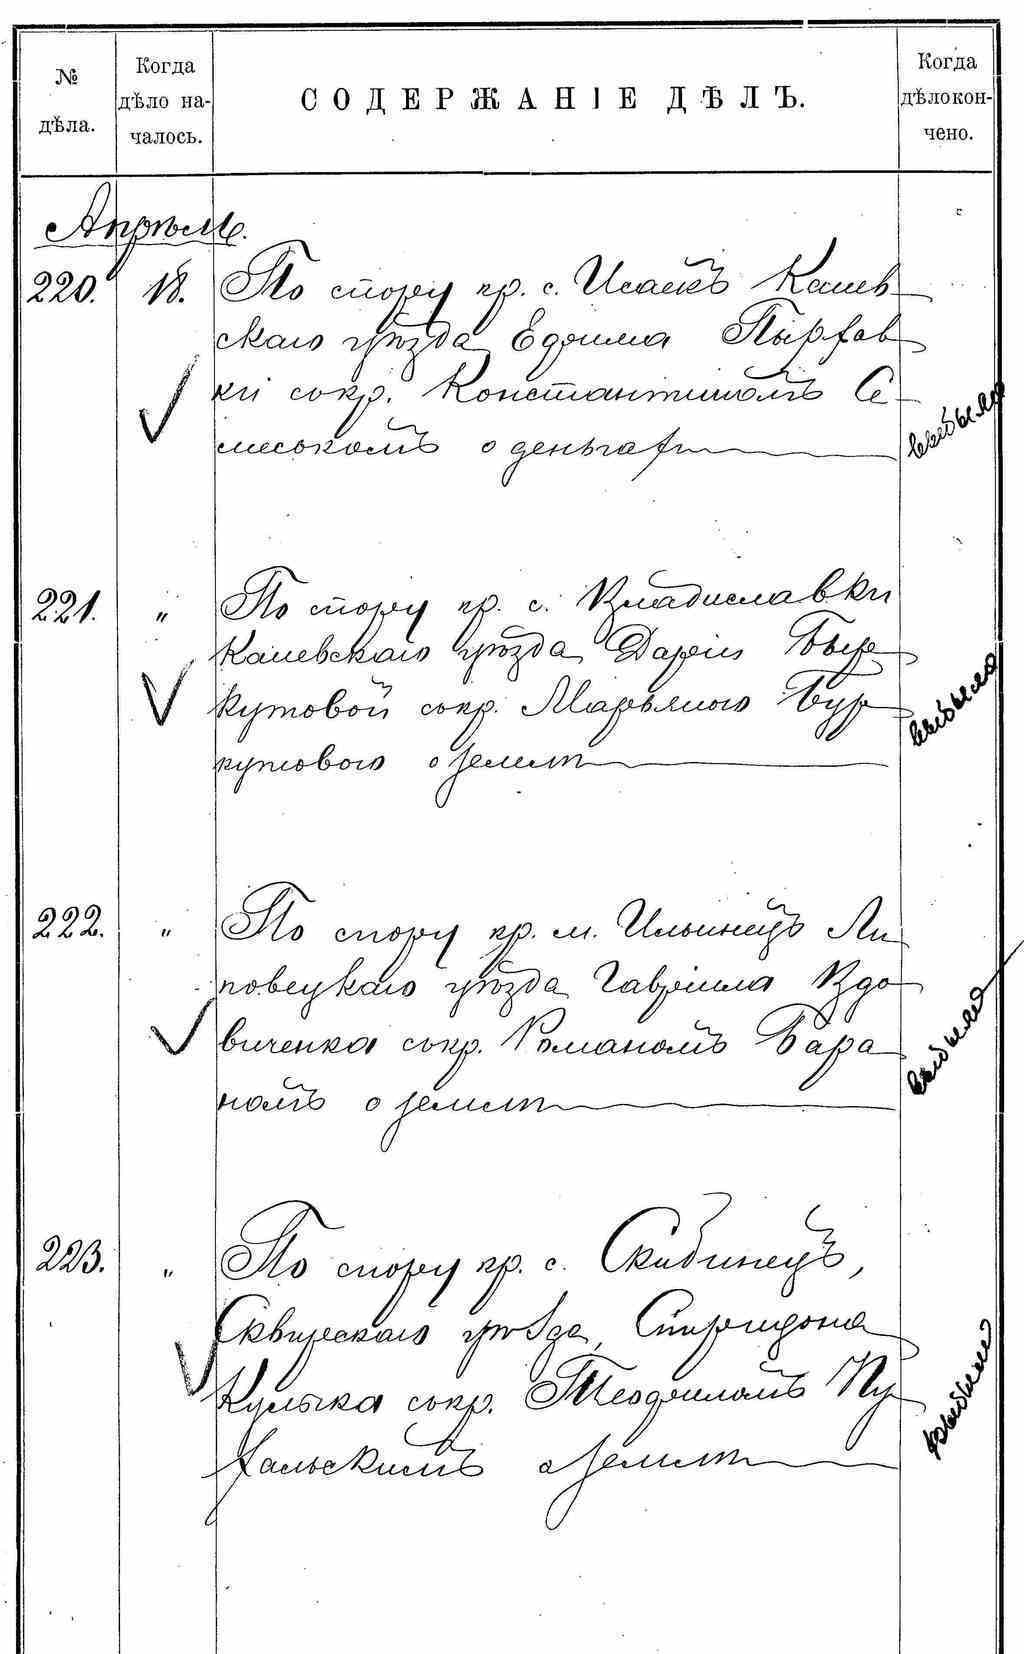 № дѣла.
Когда дѣло на-чалось.
СОДЕРЖАНІЕ ДѢЛЪ.
Когда дѣло кон-чено.
Апрѣль.
220. 18. По спору кр. с. Исаекъ Канев
скаго уѣзда Ефима
ки со кр. Константиномъ Се
о деньгах
выбыло
221. „ По спору кр. с. Владиславки
Каневскаго уѣзда Дарьи Бур
кутовой со кр. Марьяною Бур
кутовою о землѣ
выбыло
222. „ По спору кр. м. Ильинецъ Ли
повецкаго уѣзда Гавріила Вдо
виченка со кр. Романомъ Бара
номъ о землѣ
выбыло
223. „ По спору кр. с. Скибинецъ,
Сквирскаго уѣзда, Спиридона
Кулька со кр. Теофиломъ Пу
хальскимъ о землѣ
выбыло